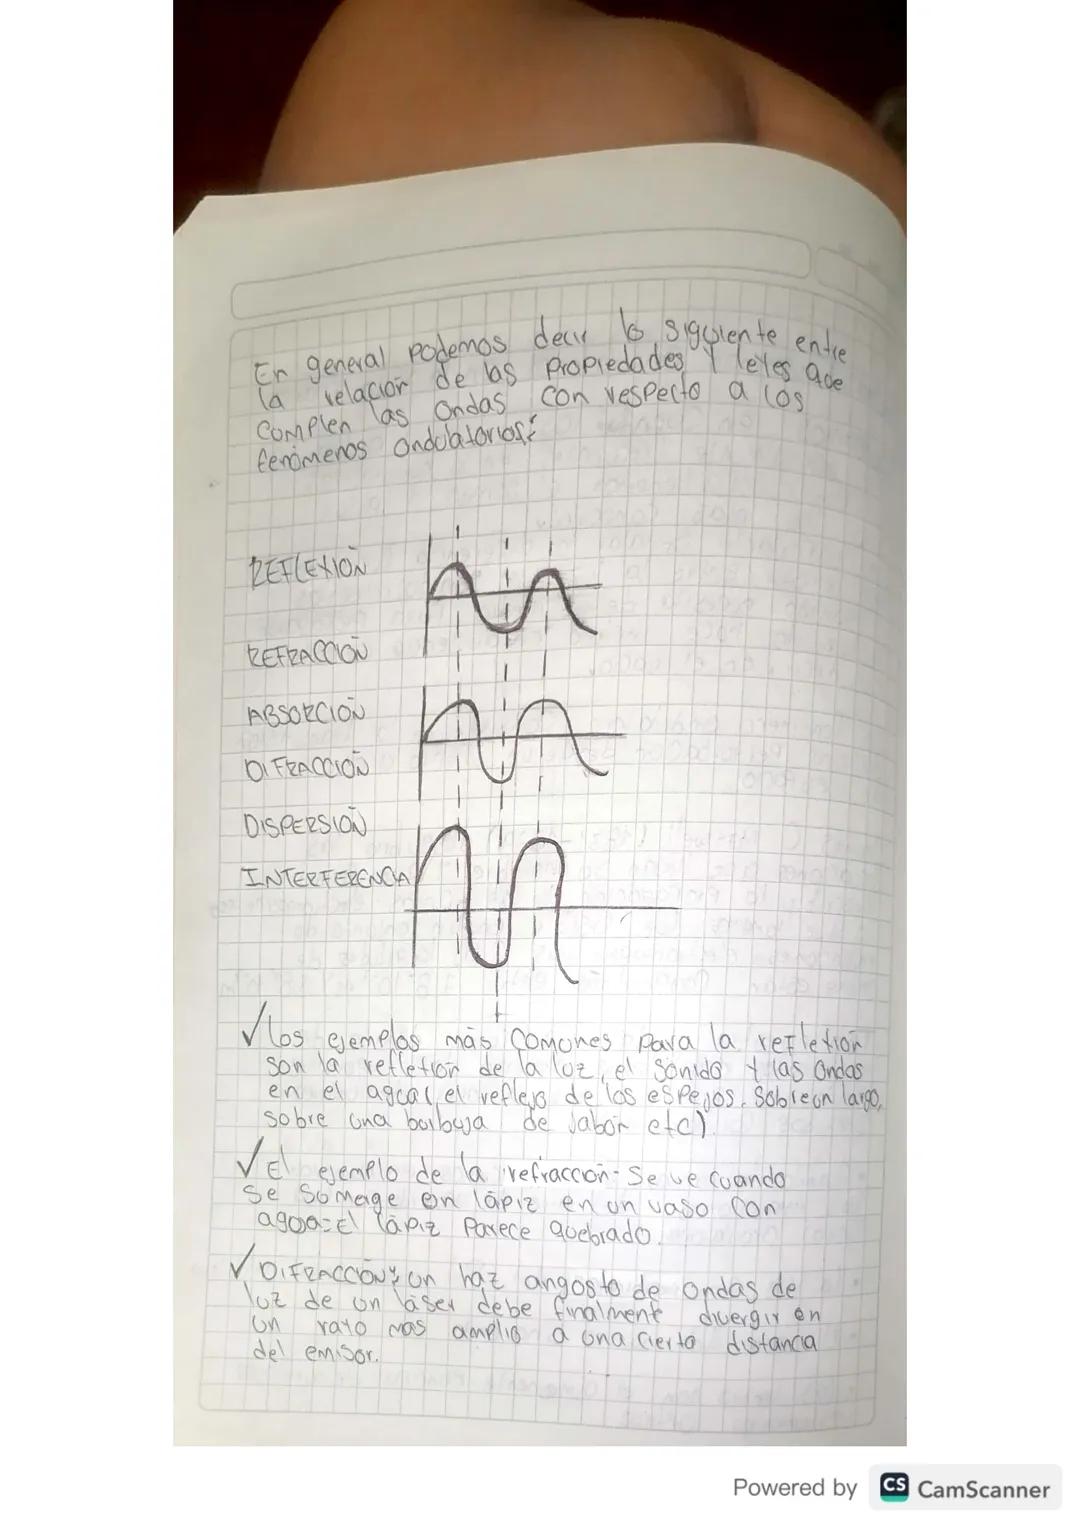 En general podemos decir lo siguiente entre
la relación de las Propiedades y leyes que
cumplen las Ondas con respecto a los
fenómenos Ondulatorios:
REFLEXIÓN
REFRACCIÓN
ABSORCIÓN
DIFRACCIÓN
DISPERSIÓN
INTERFERENCIA
✓los ejemplos más comunes para la reflexión
son la reflexión de la luz, el sonido y las Ondas
en el agua( el reflejo de los espejos, sobre un largo,
sobre una burbuja de jabón etc)
✓El ejemplo de la refracción- Se ve cuando
se somerge en lápiz en un vaso con
agua= El lápiz parece quebrado.
✓DIFRACCIÓN: un haz angosto de ondas de
luz de un láser debe finalmente divergir en
un rayo mas amplio a una cierta distancia
del emisor.
Powered by CS CamScanner